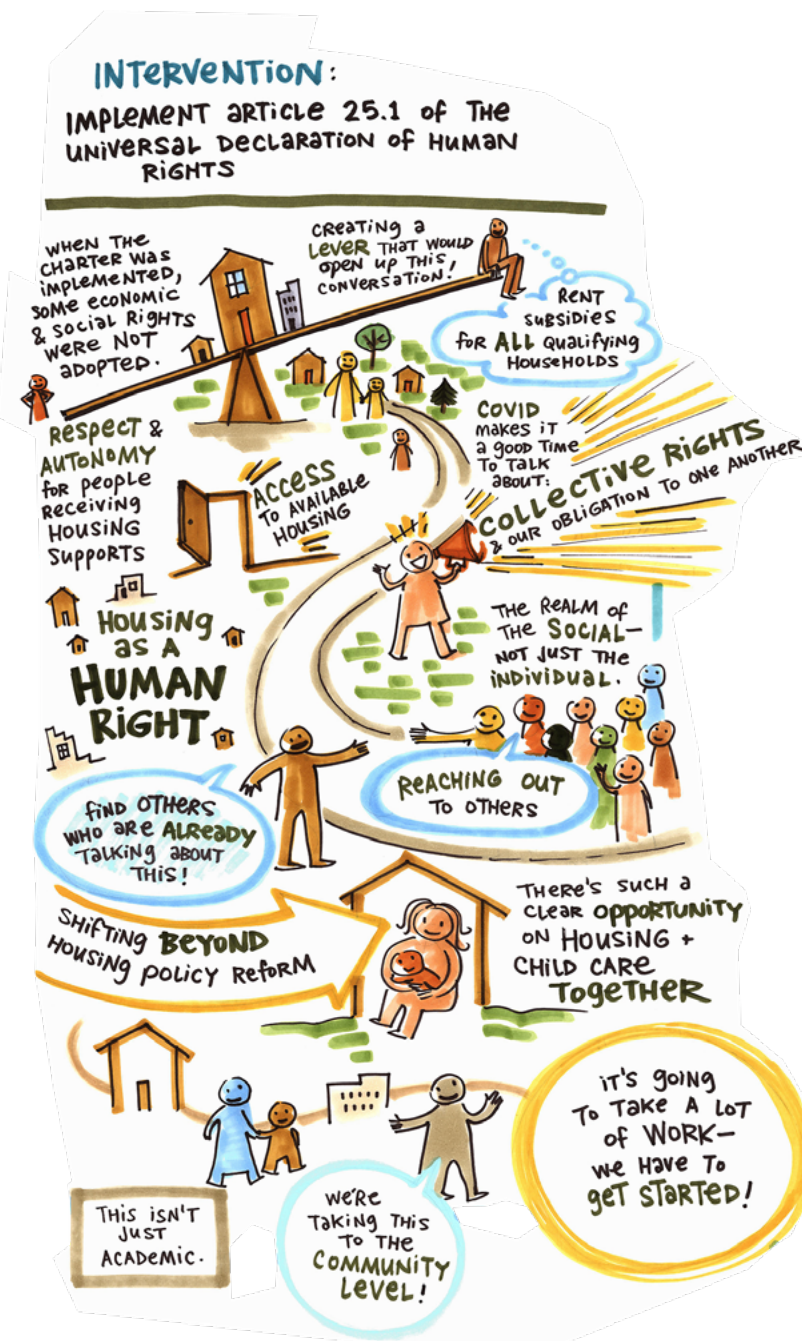 INTERVENTION:
IMPLEMENT ARTICLE 25.1 OF THE
UNIVERSAL DECLARATION OF HUMAN
RIGHTS
WHEN THE
CHARTER WAS
IMPLEMENTED,
SOME ECONOMIC
& SOCIAL RIGHTS
WERE NOT
ADOPTED.
CREATING A
LEVER THAT WOULD
OPEN UP THIS
CONVERSATION!
RENT
SUBSIDIES
FOR ALL QUALIFYING
HOUSEHOLDS
RESPECT &
AUTONOMY
FOR PEOPLE
RECEIVING
HOUSING
SUPPORTS
ACCESS
TO AVAILABLE
HOUSING
COVID
MAKES IT
A GOOD TIME
TO TALK
ABOUT:
COLLECTIVE RIGHTS
& OUR OBLIGATION TO ONE ANOTHER
HOUSING
AS A
HUMAN
RIGHT
THE REALM OF
THE SOCIAL—
NOT JUST THE
INDIVIDUAL.
FIND OTHERS
WHO ARE ALREADY
TALKING ABOUT
THIS!
REACHING OUT
TO OTHERS
SHIFTING BEYOND
HOUSING POLICY REFORM
THERE'S SUCH A
CLEAR OPPORTUNITY
ON HOUSING +
CHILD CARE
TOGETHER
IT'S GOING
TO TAKE A LOT
OF WORK—
WE HAVE TO
GET STARTED!
THIS ISN'T
JUST
ACADEMIC.
WE'RE
TAKING THIS
TO THE
COMMUNITY
LEVEL!